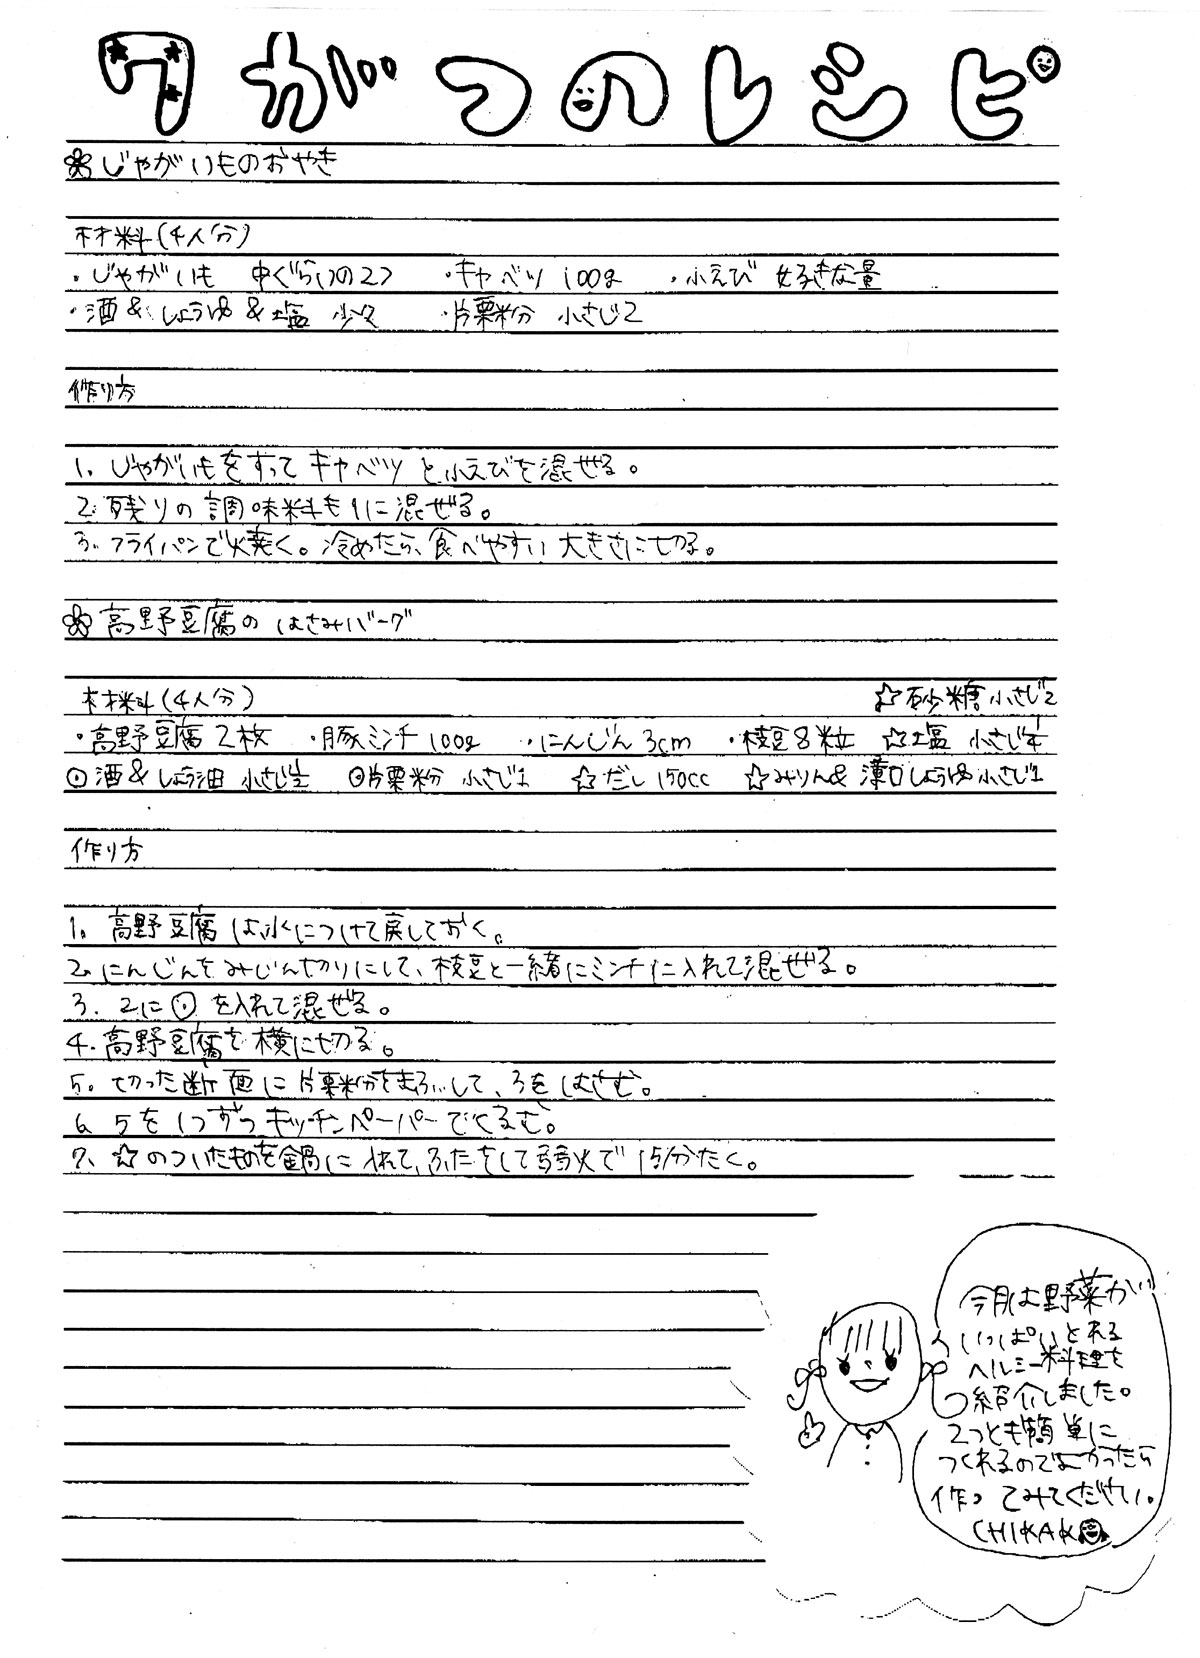 7がつのレシピ
じゃがいものおやき
材料(4人分)
・じゃがいも 中ぐらいの2つ ・キャベツ 100g ・小えび 好きな量
・酒&しょうゆ&塩 少々 ・片栗粉 小さじ2
作り方
1. じゃがいもをすってキャベツと小えびを混ぜる。
2. 残りの調味料も1に混ぜる。
3. フライパンで焼く。冷めたら、食べやすい大きさに切る。
高野豆腐のはさみバーグ
材料(4人分) ☆砂糖 小さじ2
・高野豆腐 2枚 ・豚ミンチ 100g ・にんじん 3cm ・枝豆8粒 ☆塩 小さじ1/4
⊙酒&しょう油 小さじ1/2 ⊙片栗粉 小さじ1 ☆だし 150cc ☆みりん& 薄口しょうゆ小さじ1
作り方
1. 高野豆腐は水につけて戻しておく。
2. にんじんをみじん切りにして、枝豆と一緒にミンチに入れて混ぜる。
3. 2に⊙を入れて混ぜる。
4. 高野豆腐を横に切る。
5. 切った断面に片栗粉をまぶして、3をはさむ。
6. 5を1つずつキッチンペーパーでくるむ。
7. ☆のついたものを鍋に入れて、ふたをして弱火で15分たく。
今月は野菜が
いっぱいとれる
ヘルシー料理を
紹介しました。
2つとも簡単に
つくれるのでよかったら
作ってみてください。
CHIKAK